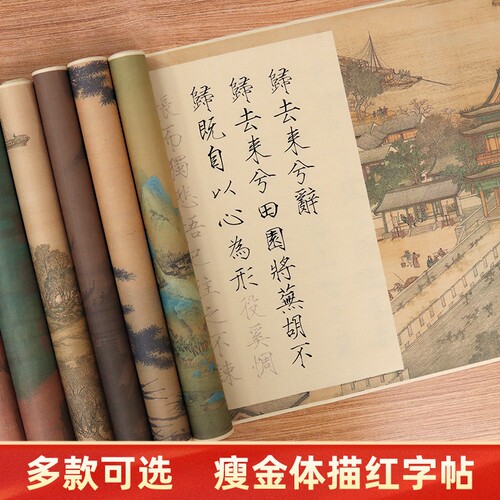 歸去来兮辭
歸去来兮田園將蕪胡不
歸既自以心為形役奚惆
而獨悲悟已往之不
多款可选 瘦金体描红字帖